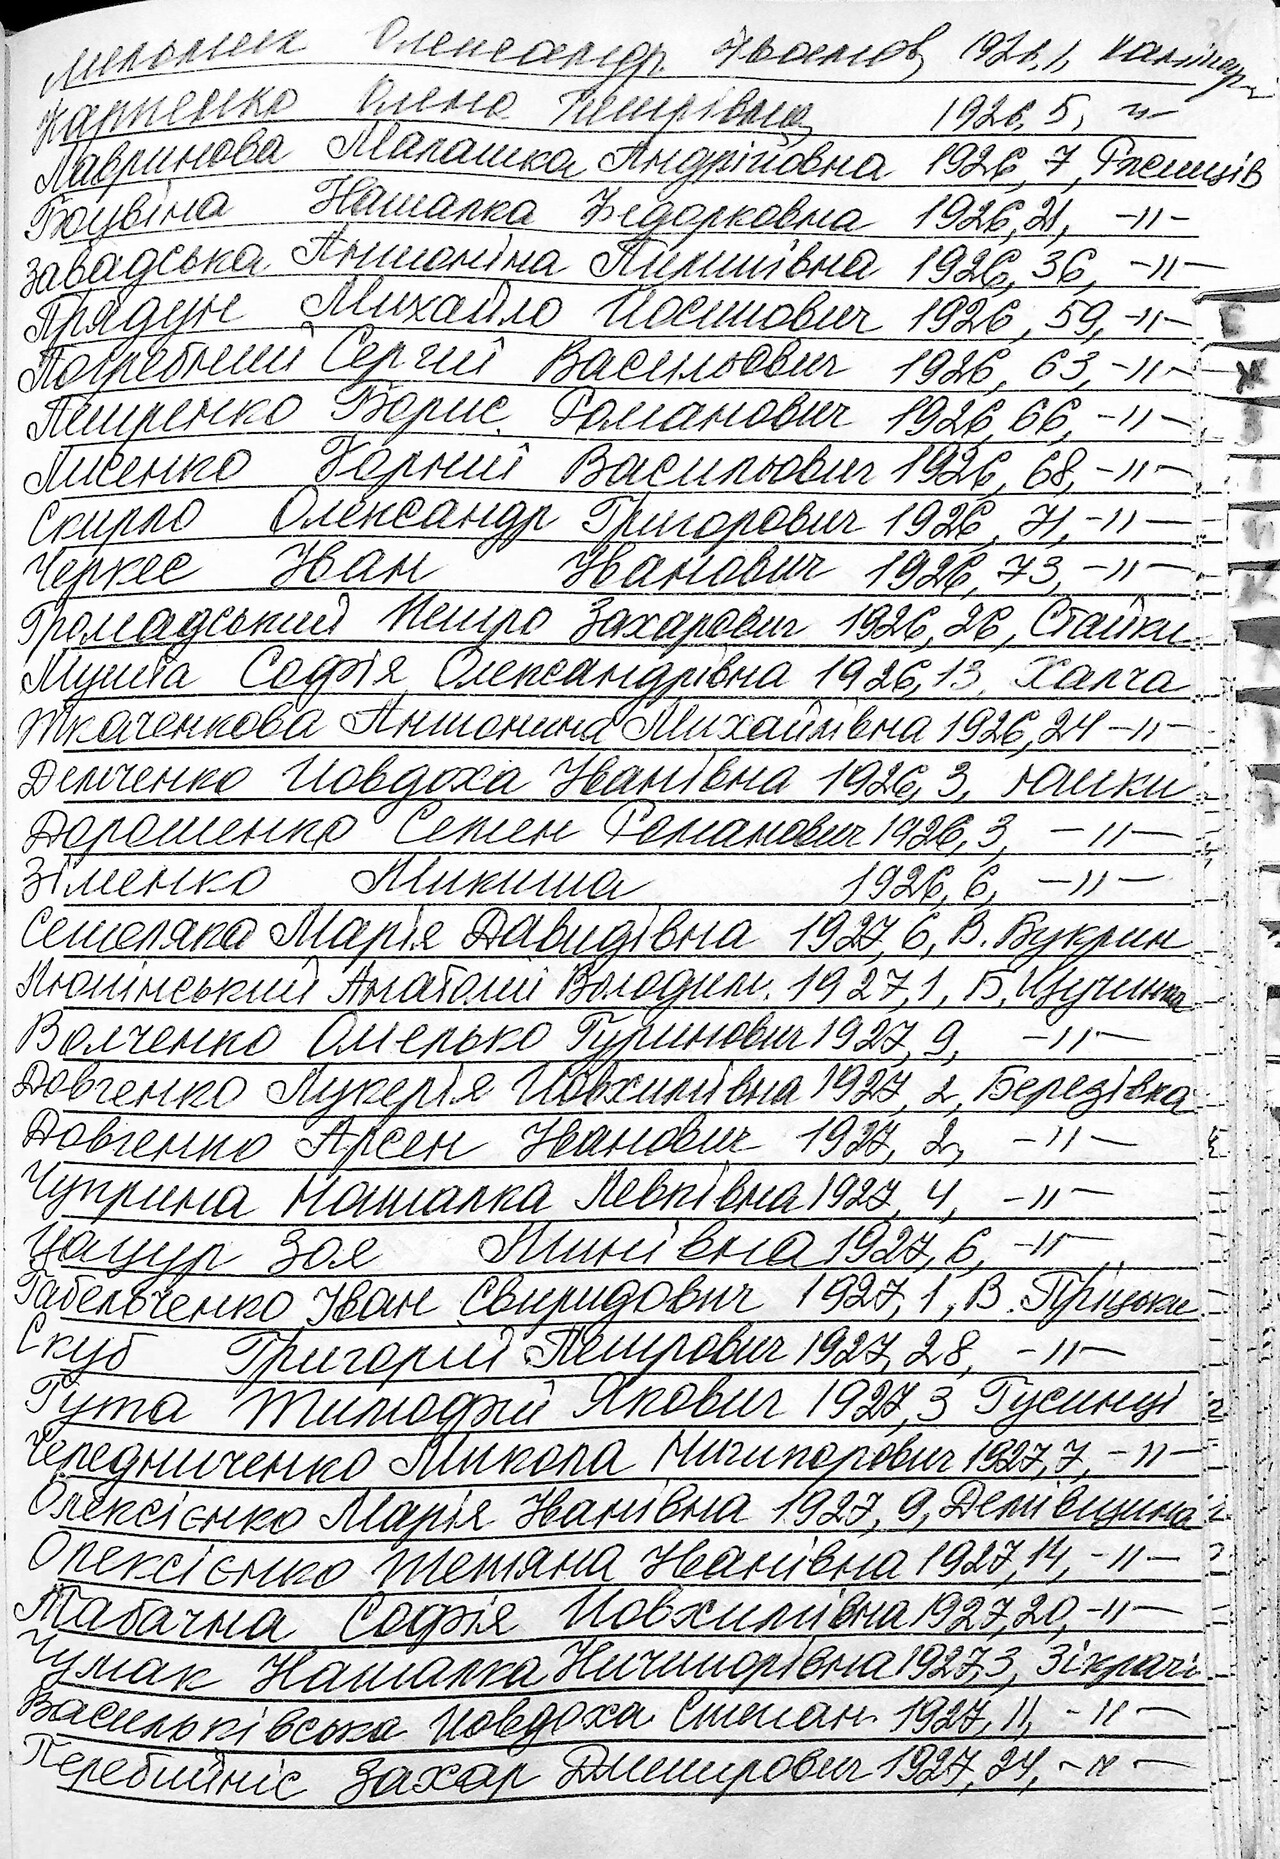 Мельник Олександр Іванов 1926, 1,
Карпенко Олена Петрівна, 1926, 5, -"-
Лавринова Малашка Андріївна 1926, 7, Ржищів
Наталка Федорковна 1926, 21, -"-
Завадська Антоніна Пилипівна 1926, 36, -"-
Прядун Михайло Йосипович 1926, 59, -"-
Погребний Сергій Васильович 1926, 63, -"-
Петренко Борис Романович 1926, 66, -"-
Лисенко Корній Васильович 1926, 68, -"-
Скирло Олександр Григорович 1926, 71, -"-
Черкес Іван Іванович 1926, 73, -"-
Громадський Петро Захарович 1926, 26, Стайки
Мушта Софія Олександрівна 1926, 13, Халча
Ткаченкова Антонина Михайлівна 1926, 24 -"-
Демченко Йовдоха Іванівна 1926, 3, Юшки
Дорошенко Семен Романович 1926, 3, -"-
Зіменко Микита 1926, 6, -"-
Сешеляка Марія Давидівна 1927, 6, В. Букрин
Люлінський Анатолій Володим. 1927, 1, Б. Щучинка
Волченко Омелько Гуринович 1927, 9, -"-
Довгенко Лукерія Йовхимівна 1927, 2, Березівка
Довгенко Арсен Іванович 1927, 2, -"-
Чуприна Наталка Левківна 1927, 4, -"-
Цацур Зоя Минівна 1927, 6, -"-
Габельченко Іван Свиридович 1927, 1, В. Пріцьки
Скуб Григорій Петрович 1927, 28, -"-
Гута Тимофій Якович 1927, 3 Гусинці
Чередниченко Микола Ничипорович 1927, 7, -"-
Олексієнко Марія Іванівна 1927, 9, Демівщина
Олексієнко Тетяна Іванівна 1927, 14, -"-
Табачна Софія Йовхимівна 1927, 20, -"-
Чумак Наталка Ничипорівна 1927, 3, Зікрачі
Васильківська Йовдоха Степан. 1927, 11, -"-
Перебийніс Захар Дмитрович 1927, 24, -"-